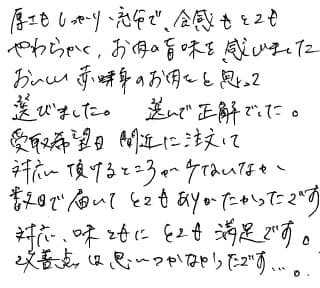 厚さもしっかり充分で、食感もとても
やわらかく、お肉の旨味を感じました
おいしい赤身のお肉をと思って
選びました。 選んで正解でした。
受取希望日 間近に注文して
対応頂けるところが少ないなか
数日で届いてとてもありがたかったです
対応、味ともにとても満足です。
改善点は思いつかなかったです…。